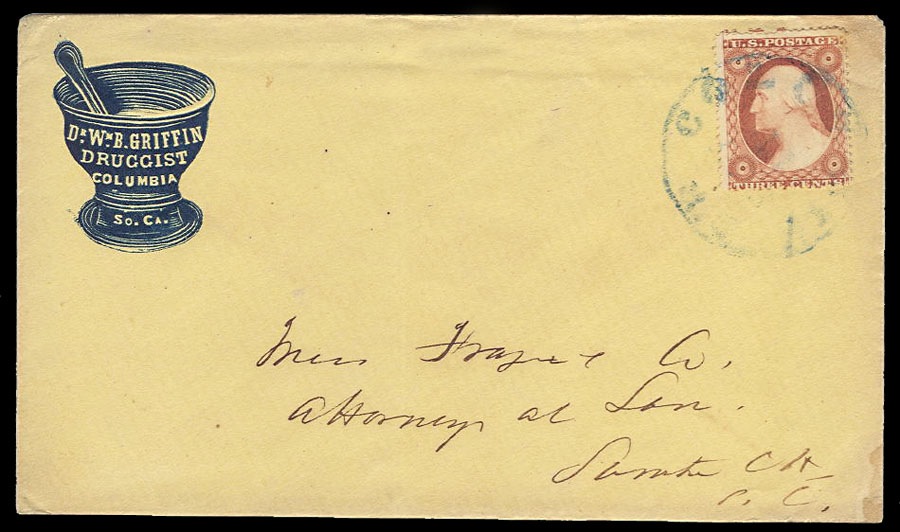 Dr. Wm. B. GRIFFIN
DRUGGIST
COLUMBIA
So. Ca.
U.S. POSTAGE
THREE CENTS
Mess Co.
Attorneys at Law.
C H
S. C.